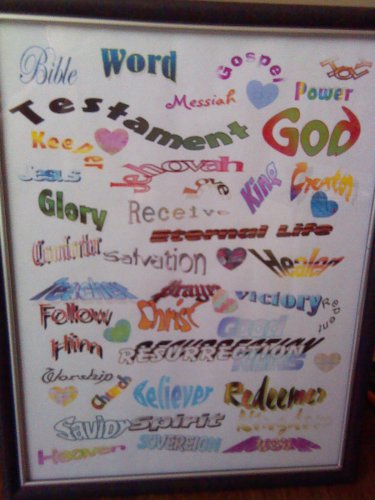 Bible Word Gospel Joy
Messiah Power
Testament God
Keeper Jehovah
Jesus Love King Creator
Glory Receive
Eternal Life
Comforter Salvation Healer
Prayer Victory
Follow Christ Repent
Him Good News
RESURRECTION
Worship Church Believer Redeemer
Savior Spirit Kingdom
Heaven SOVEREIGN